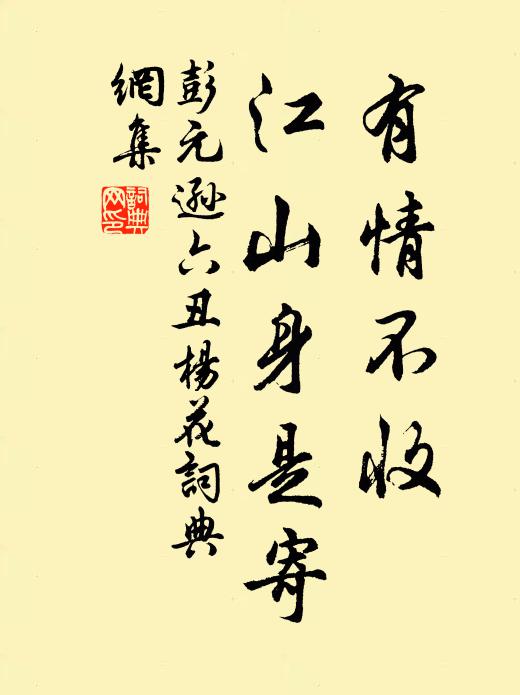 有情不收
江山身是寄
彭元遜六丑楊花詞典
網集
詞典網印